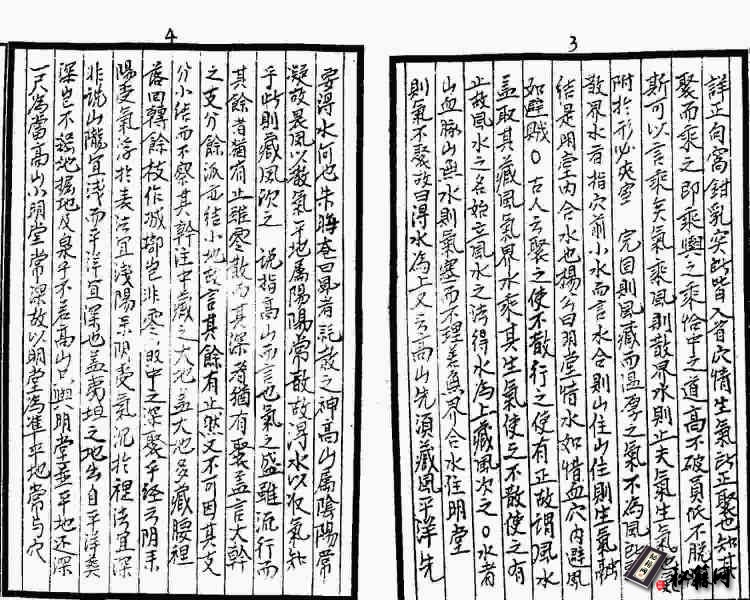 3
詳正向窩鉗乳突所皆入首穴情生氣所正聚也知其
聚而乘之即乘輿之乘恰中之道高不破員低不脫
斯可以言乘矣氣乘風則散界水則止夫氣生氣也
附於形必爽塞 完固則風藏而溫孕之氣不為風所
散界水者指穴前小水而言水合則山住山住則生氣融
結是明堂內合水也揚公曰明堂惜水如惜血穴內避風
如避賊〇古人云聚之使不散行之使有止故謂風水
蓋取其藏風氣界水乘其生氣使之不散使之有
止故風水之名始立風水之法得水為上藏風次之〇水者
山血脉山無水則氣塞而不理 界合水住明堂
則氣不聚故曰得水為上又云高山先須藏風平洋先
4
要得水何也朱晦菴曰風者 散之神高山属陰陽常
凝故畏風以散氣平地属陽陽常散故得水以收氣知
乎此則藏風次之 說指高山而言也氣之盛雖流行而
其餘者猶有止雖零散而其深者猶有聚蓋言大幹
之支分餘派並結小地故言其餘有止然又不可因其支
分小結而不察其幹注中藏之大地蓋大地多藏腰裡
落回轉餘枝作城郭豈非零散中之深聚乎經云陰來
陽受氣浮於表法宜淺陽來陰受氣沉於裡法宜深
非說山隴宜淺而平洋宜深也蓋夷坦之地出自平洋葬
深豈不過地掘地及泉乎不若高山只與明堂並平地還深
一尺為當高山小明堂常深故以明堂為準平地常与穴